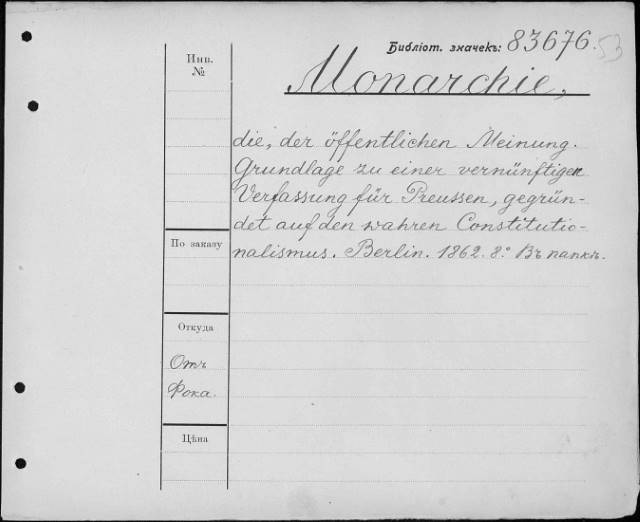 Библіот. значекъ: 83676. 53
Инв.
№
Monarchie,
die, der öffentlichen Meinung.
Grundlage zu einer vernünftigen
Verfassung für Preussen, gegrün-
det auf den wahren Constitutio-
nalismus. Berlin. 1862. 8.° Въ папкѣ.
По заказу
Откуда
Отъ
Фока.
Цѣна